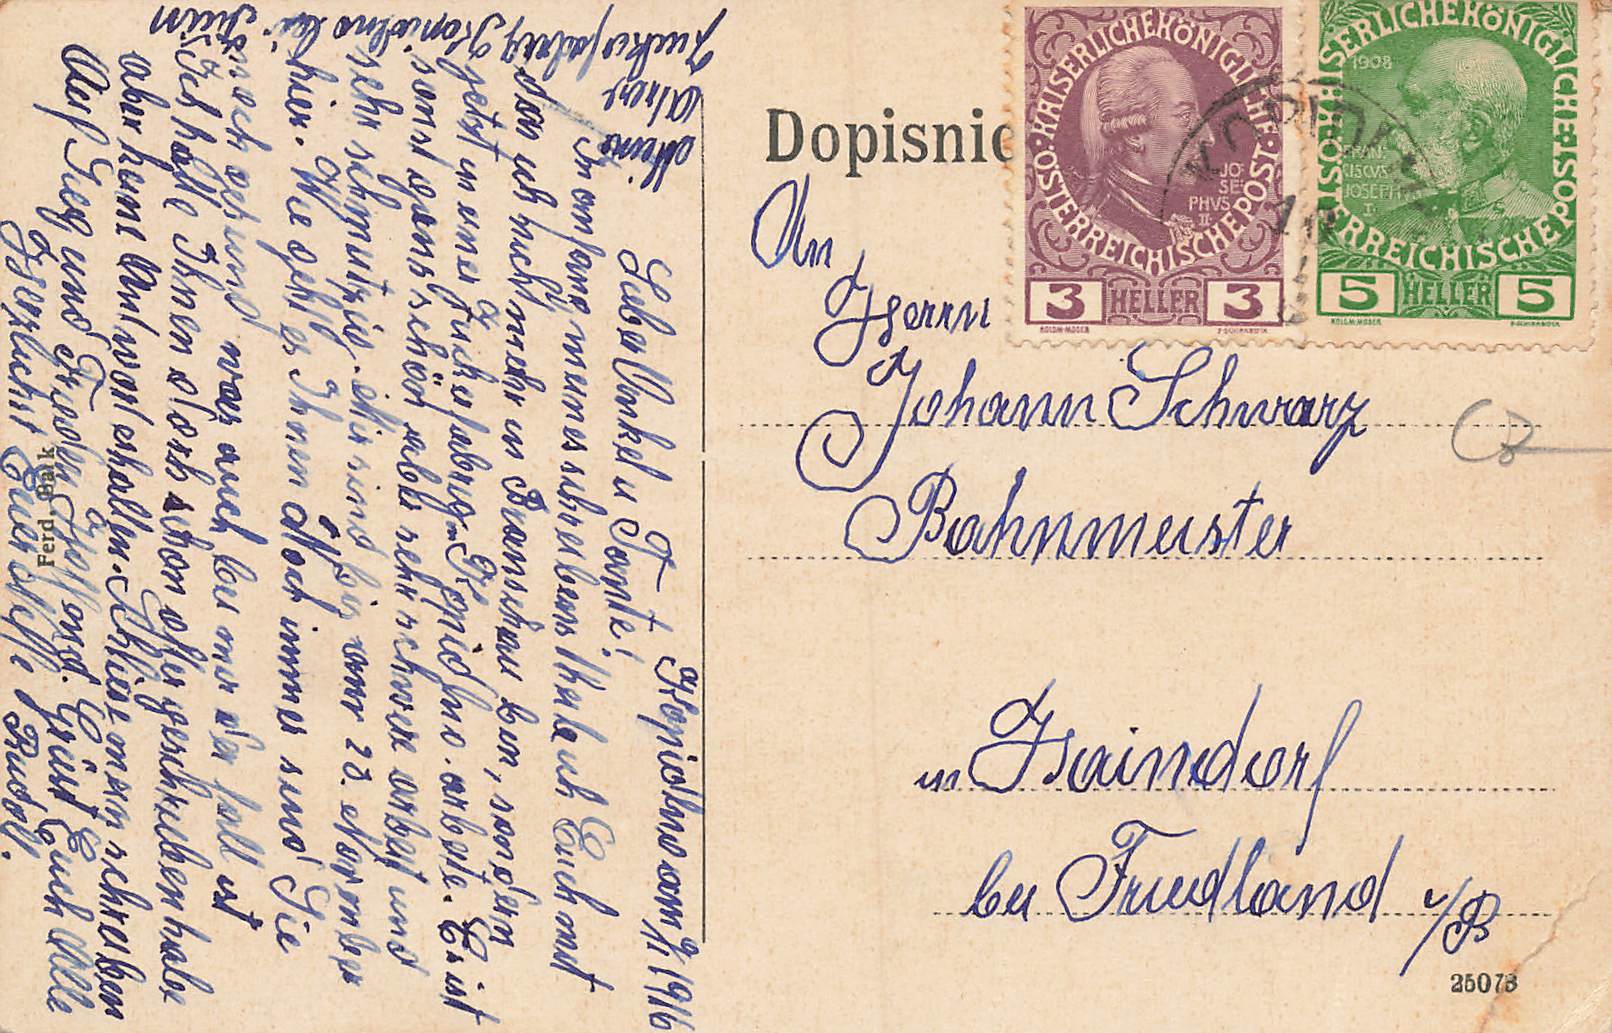 Dopisnic
KAISERLICHE KÖNIGLICHE
ÖSTERREICHISCHE POST
JO
SE
PHVS
II
3 HELLER 3
KOLOM·MOSER
F·SCHIRNBÖCK
KAISERLICHE KÖNIGLICHE
ÖSTERREICHISCHE POST
1908
FRAN
CISCVS
JOSEPH
I
5 HELLER 5
KOLOM·MOSER
F·SCHIRNBÖCK
KOPIDLNO
An
Herrn
Johann Schwarz
Bahnmeister
in Haindorf
bei Friedland i/B
25073
Ferd. Balk
Kopidlno am 1916
Lieber Onkel u Tante!
In anfang meines schreibens theile ich Euch mit
das ich nicht mehr in bin, sondern
jetzt in einer Zuckerfabrig Kopidlno arbeite. Es ist
sonst ganz schön aber sehr schwere arbeit und
sehr schmutzig. Wir sind bis zum 20. November
hier. Wie geht es Ihnen Noch immer sind Sie
noch gesund was auch bei mir der fall ist
Ich hatte Ihnen doch schon öfter geschrieben habe
aber keine Antwort erhalten. man schreiben
Auf Sieg und Frieden Hoffend. Grüst Euch Alle
Herzlichst Euer Neffe Rudolf.
Meine
Adres
Zuckerfabrig Kopidlno bei